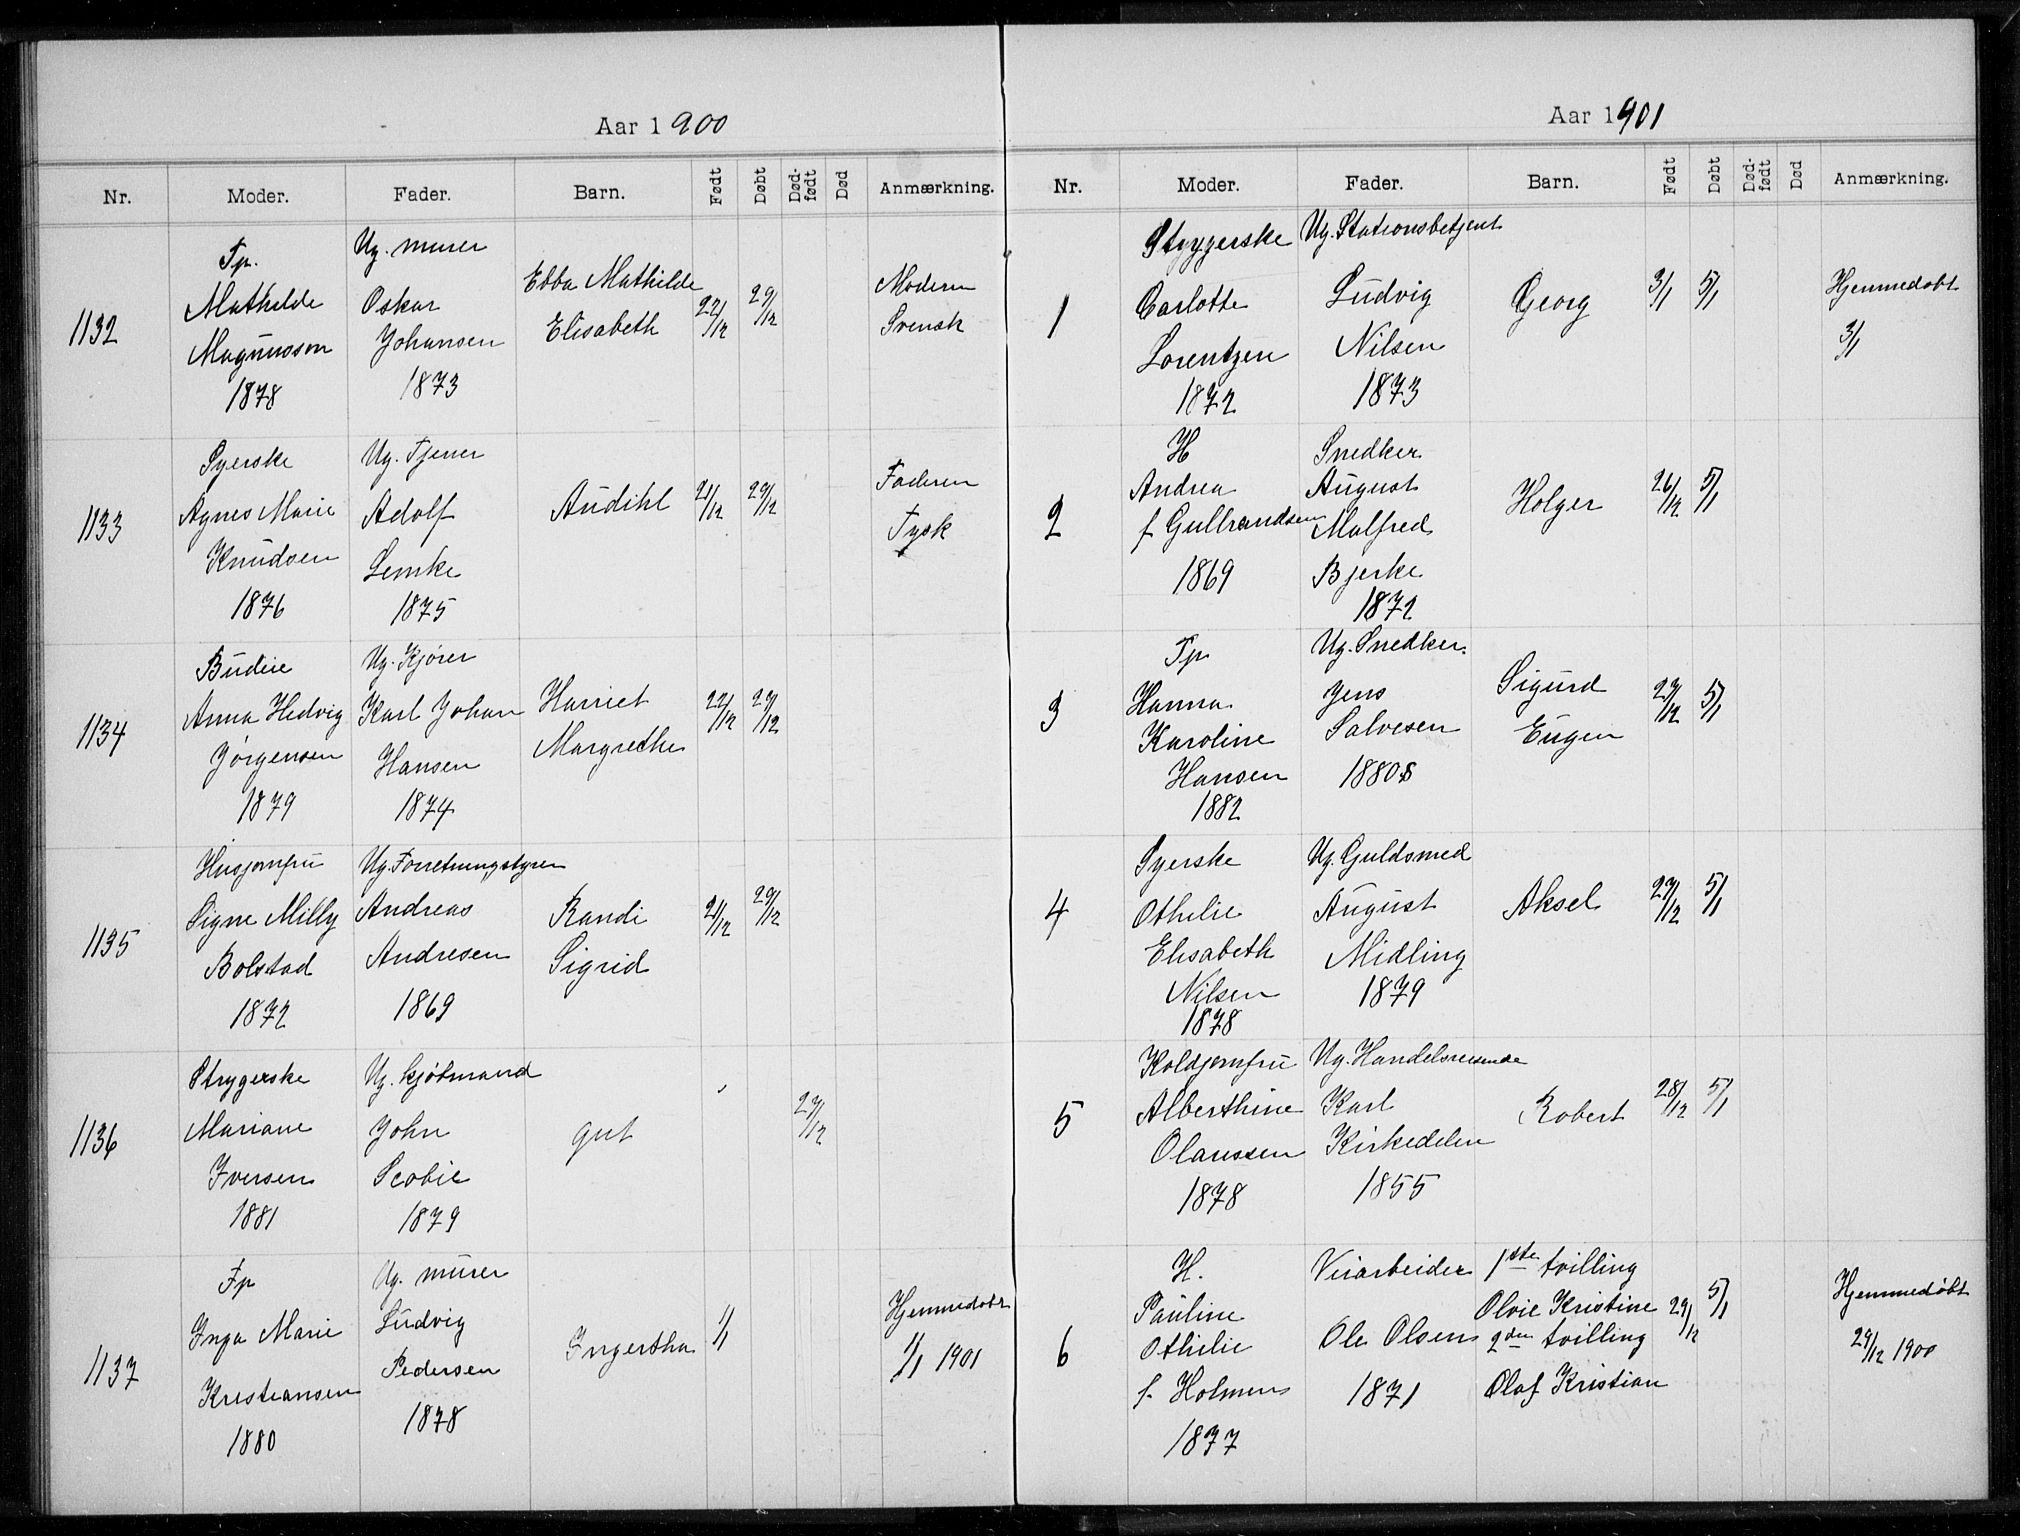 Aar 1900
Nr. Moder. Fader. Barn. Født Døbt Død-født Død Anmærkning.
1132
Tp.
Mathilde
Magnusson
1878
Ug. murer
Oskar
Johansen
1873
Ebba Mathilde
Elisabeth
22/12 29/12
Moderen
Svensk
1133
Syerske
Agnes Marie
Knudsen
1876
Ug. Tjener
Adolf
Lemke
1875
21/12 29/12
Faderen
Tysk
1134
Budeie
Anna Hedvig
Jørgensen
1879
Ug. Kjører
Karl Johan
Hansen
1874
Harriet
Margrethe
22/12 29/12
1135
Husjomfru
Signe Milly
Bolstad
1872
Ug. Forretningstyrer
Andreas
Andresen
1869
Randi
Sigrid
21/12 29/12
1136
Strygerske
Mariane
Iversen
1881
Ug. kjøbmand
John
Scobie
1879
gut
27/12
1137
Fp
Inga Marie
Kristiansen
1880
Ug. murer
Ludvig
Pedersen
1878
Ingertha
1/1
Hjemmedøbt
1/1 1901
Aar 1901
Nr. Moder. Fader. Barn. Født Døbt Død-født Død Anmærkning.
1
Strygerske
Carlotte
Lorentzen
1872
Ug. Stationsbetjent
Ludvig
Nilsen
1873
Georg
3/1 5/1
Hjemmedøbt
3/1
2
H
Andrea
f Gulbrandsen
1869
Snedker
August
Malfred
Bjerke
1872
Holger
26/12 5/1
3
Tp
Hanna
Karoline
Hansen
1882
Ug. Snedker.
Jens
Salvesen
1880
Sigurd
Eugen
29/12 5/1
4
Syerske
Othilie
Elisabeth
Nilsen
1878
Ug. Guldsmed
August
Midling
1879
Aksel
27/12 5/1
5
Koldjomfru
Alberthine
Olaussen
1878
Ug. Handelsreisende
Karl
Kirkedelen
1855
Robert
28/12 5/1
6
H.
Pauline
Othilie
f. Holmen
1877
Veiarbeider
Ole Olsen
1871
1ste tvilling
Olvie Kristine
2den tvilling
Olaf Kristian
29/12 5/1
Hjemmedøbt
29/12 1900